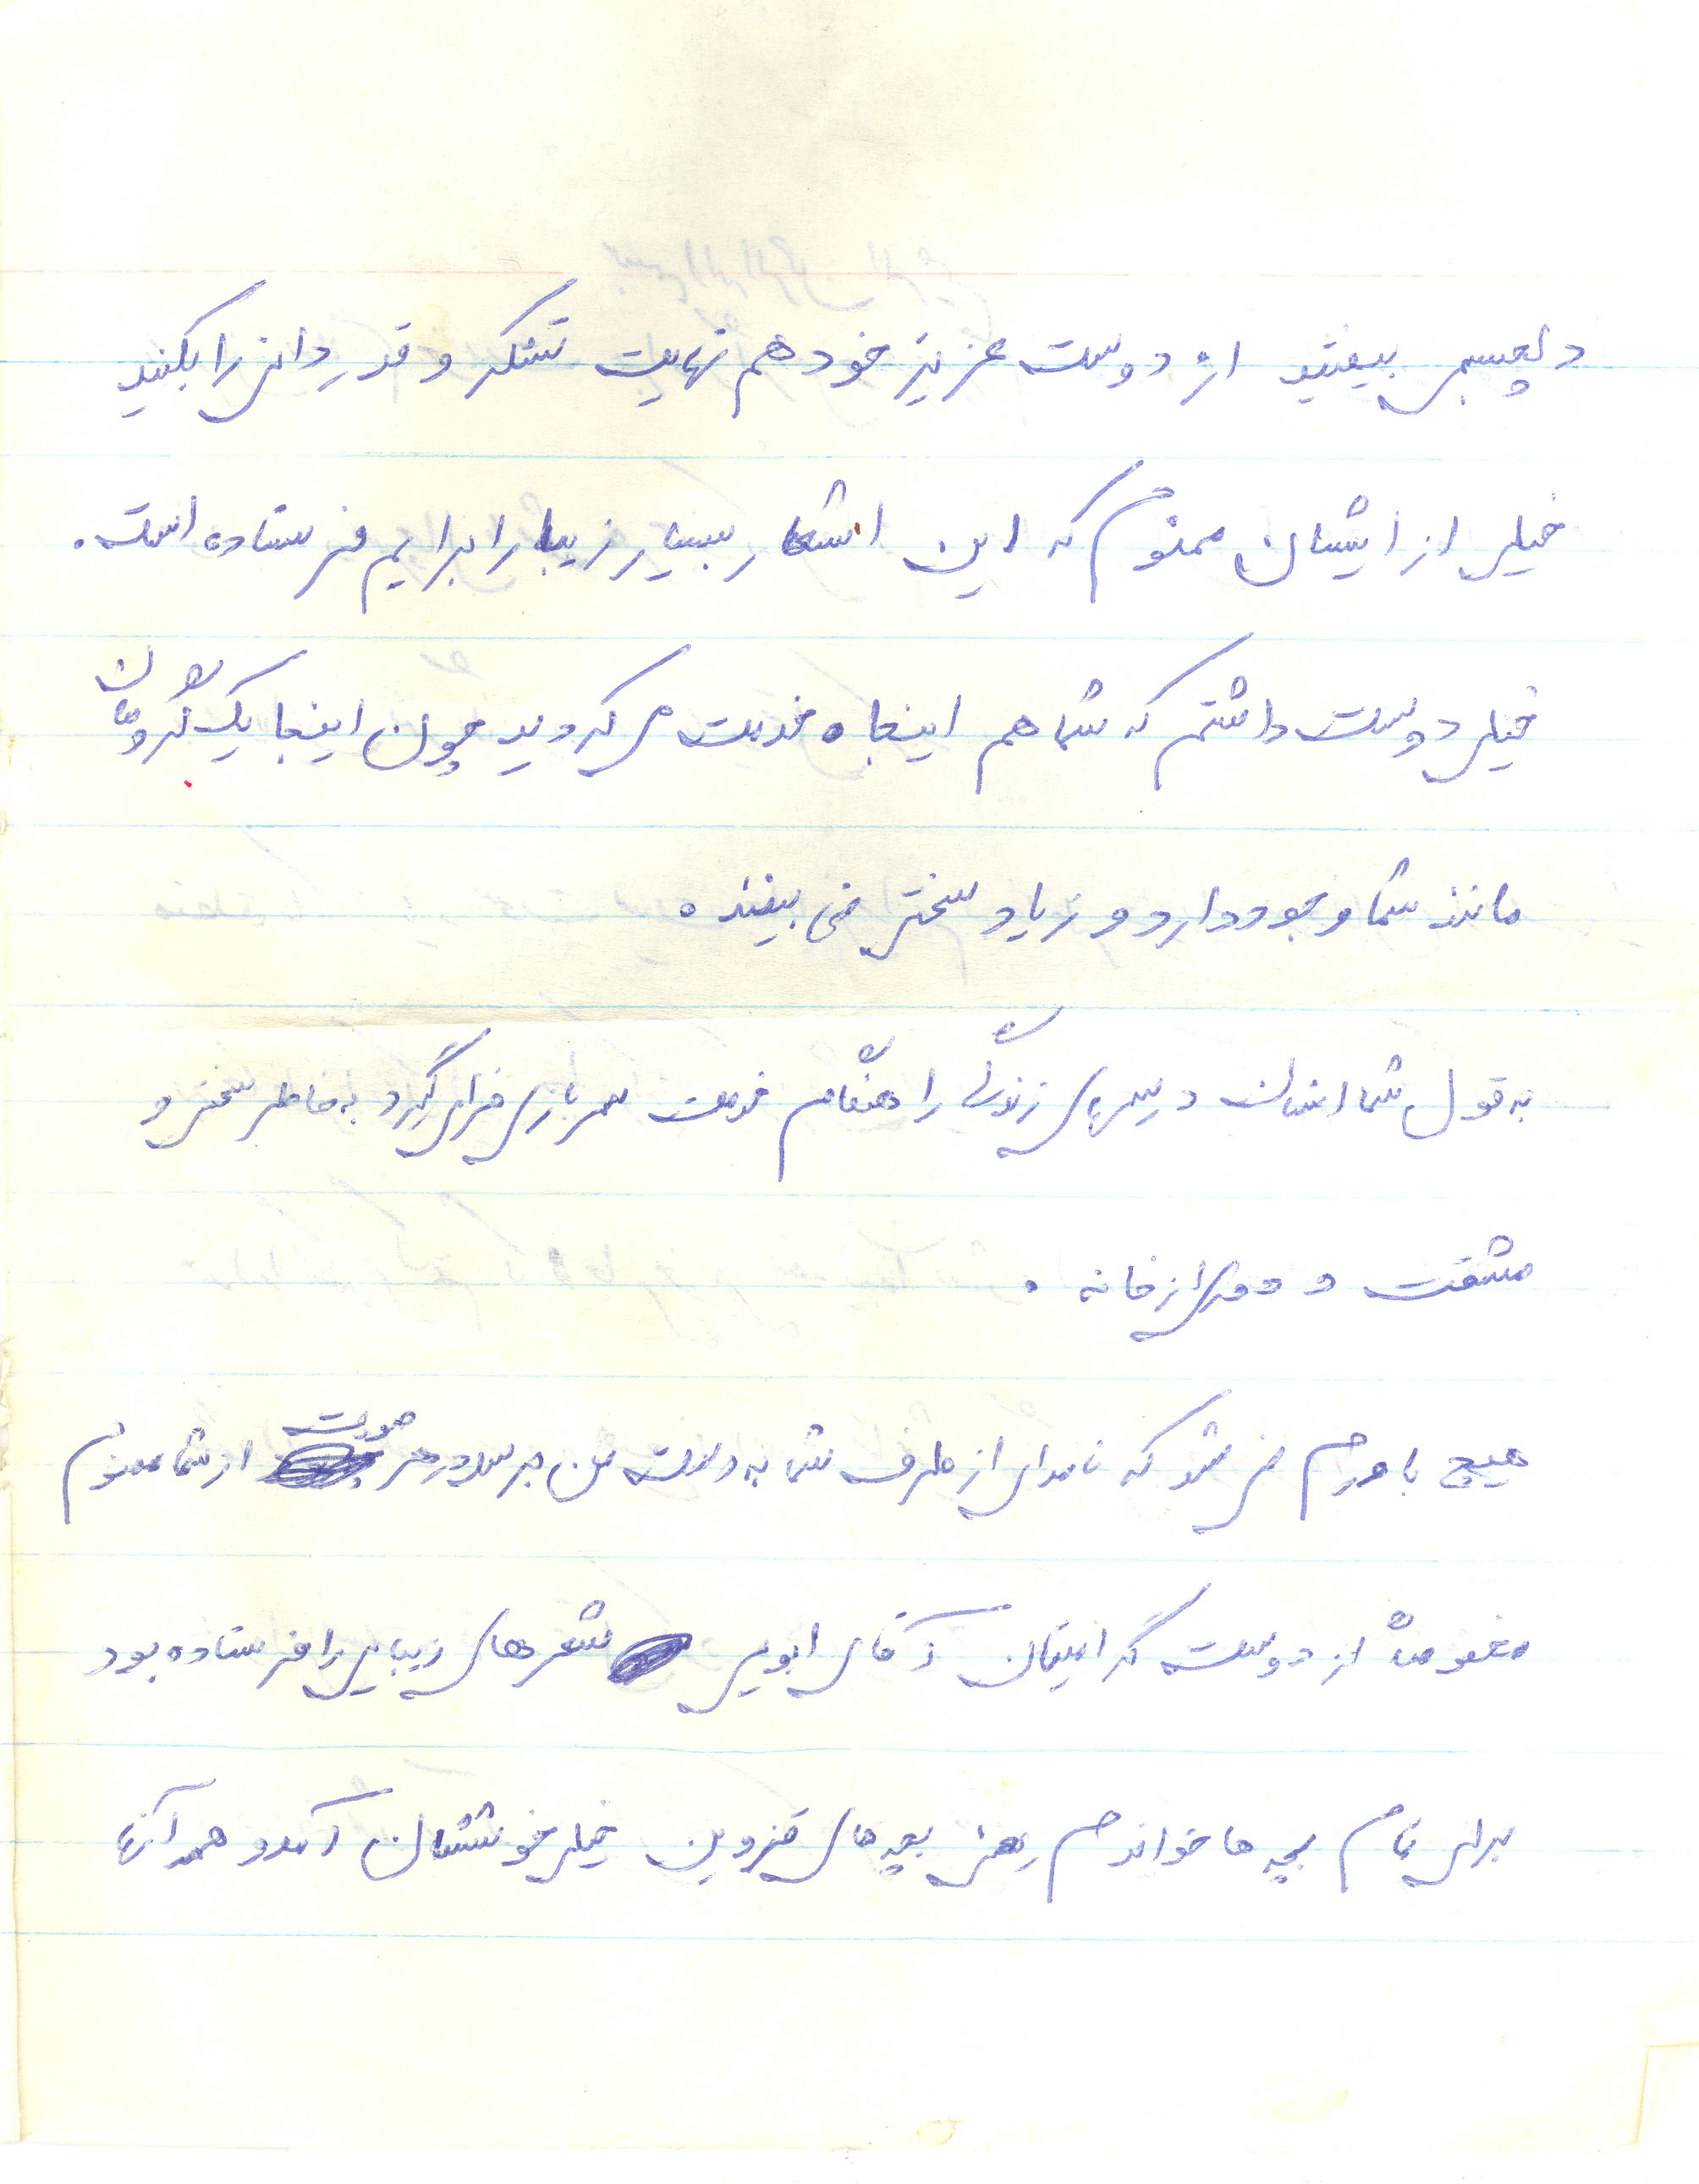 دلچسبی بیفتید از دوست عزیز خود هم نهایت تشکر و قدردانی را بکنید
خیلی از ایشان ممنونم که این اشعار بسیار زیبا را برایم فرستاده است.
خیلی دوست داشتم که شما هم اینجا خدمت می کردید چون اینجا یک گروهان
مانند شما وجود دارد و زیاد سختی نمی بینند.
به قول شما انسان درسهای زندگی را هنگام خدمت سربازی فرا می گیرد به خاطر سختی و
مشقت و دوری از خانه .
هیچ باورم نمی شد که نامه ای از طرف شما به دست من برسد در هر صورت از شما ممنونم
مخصوصاً از دوست گرامیتان آقای شعرهای زیبایی را فرستاده بود
برای تمام بچه ها خواندم یعنی بچه های قزوین خیلی خوششان آمد و همه آنها